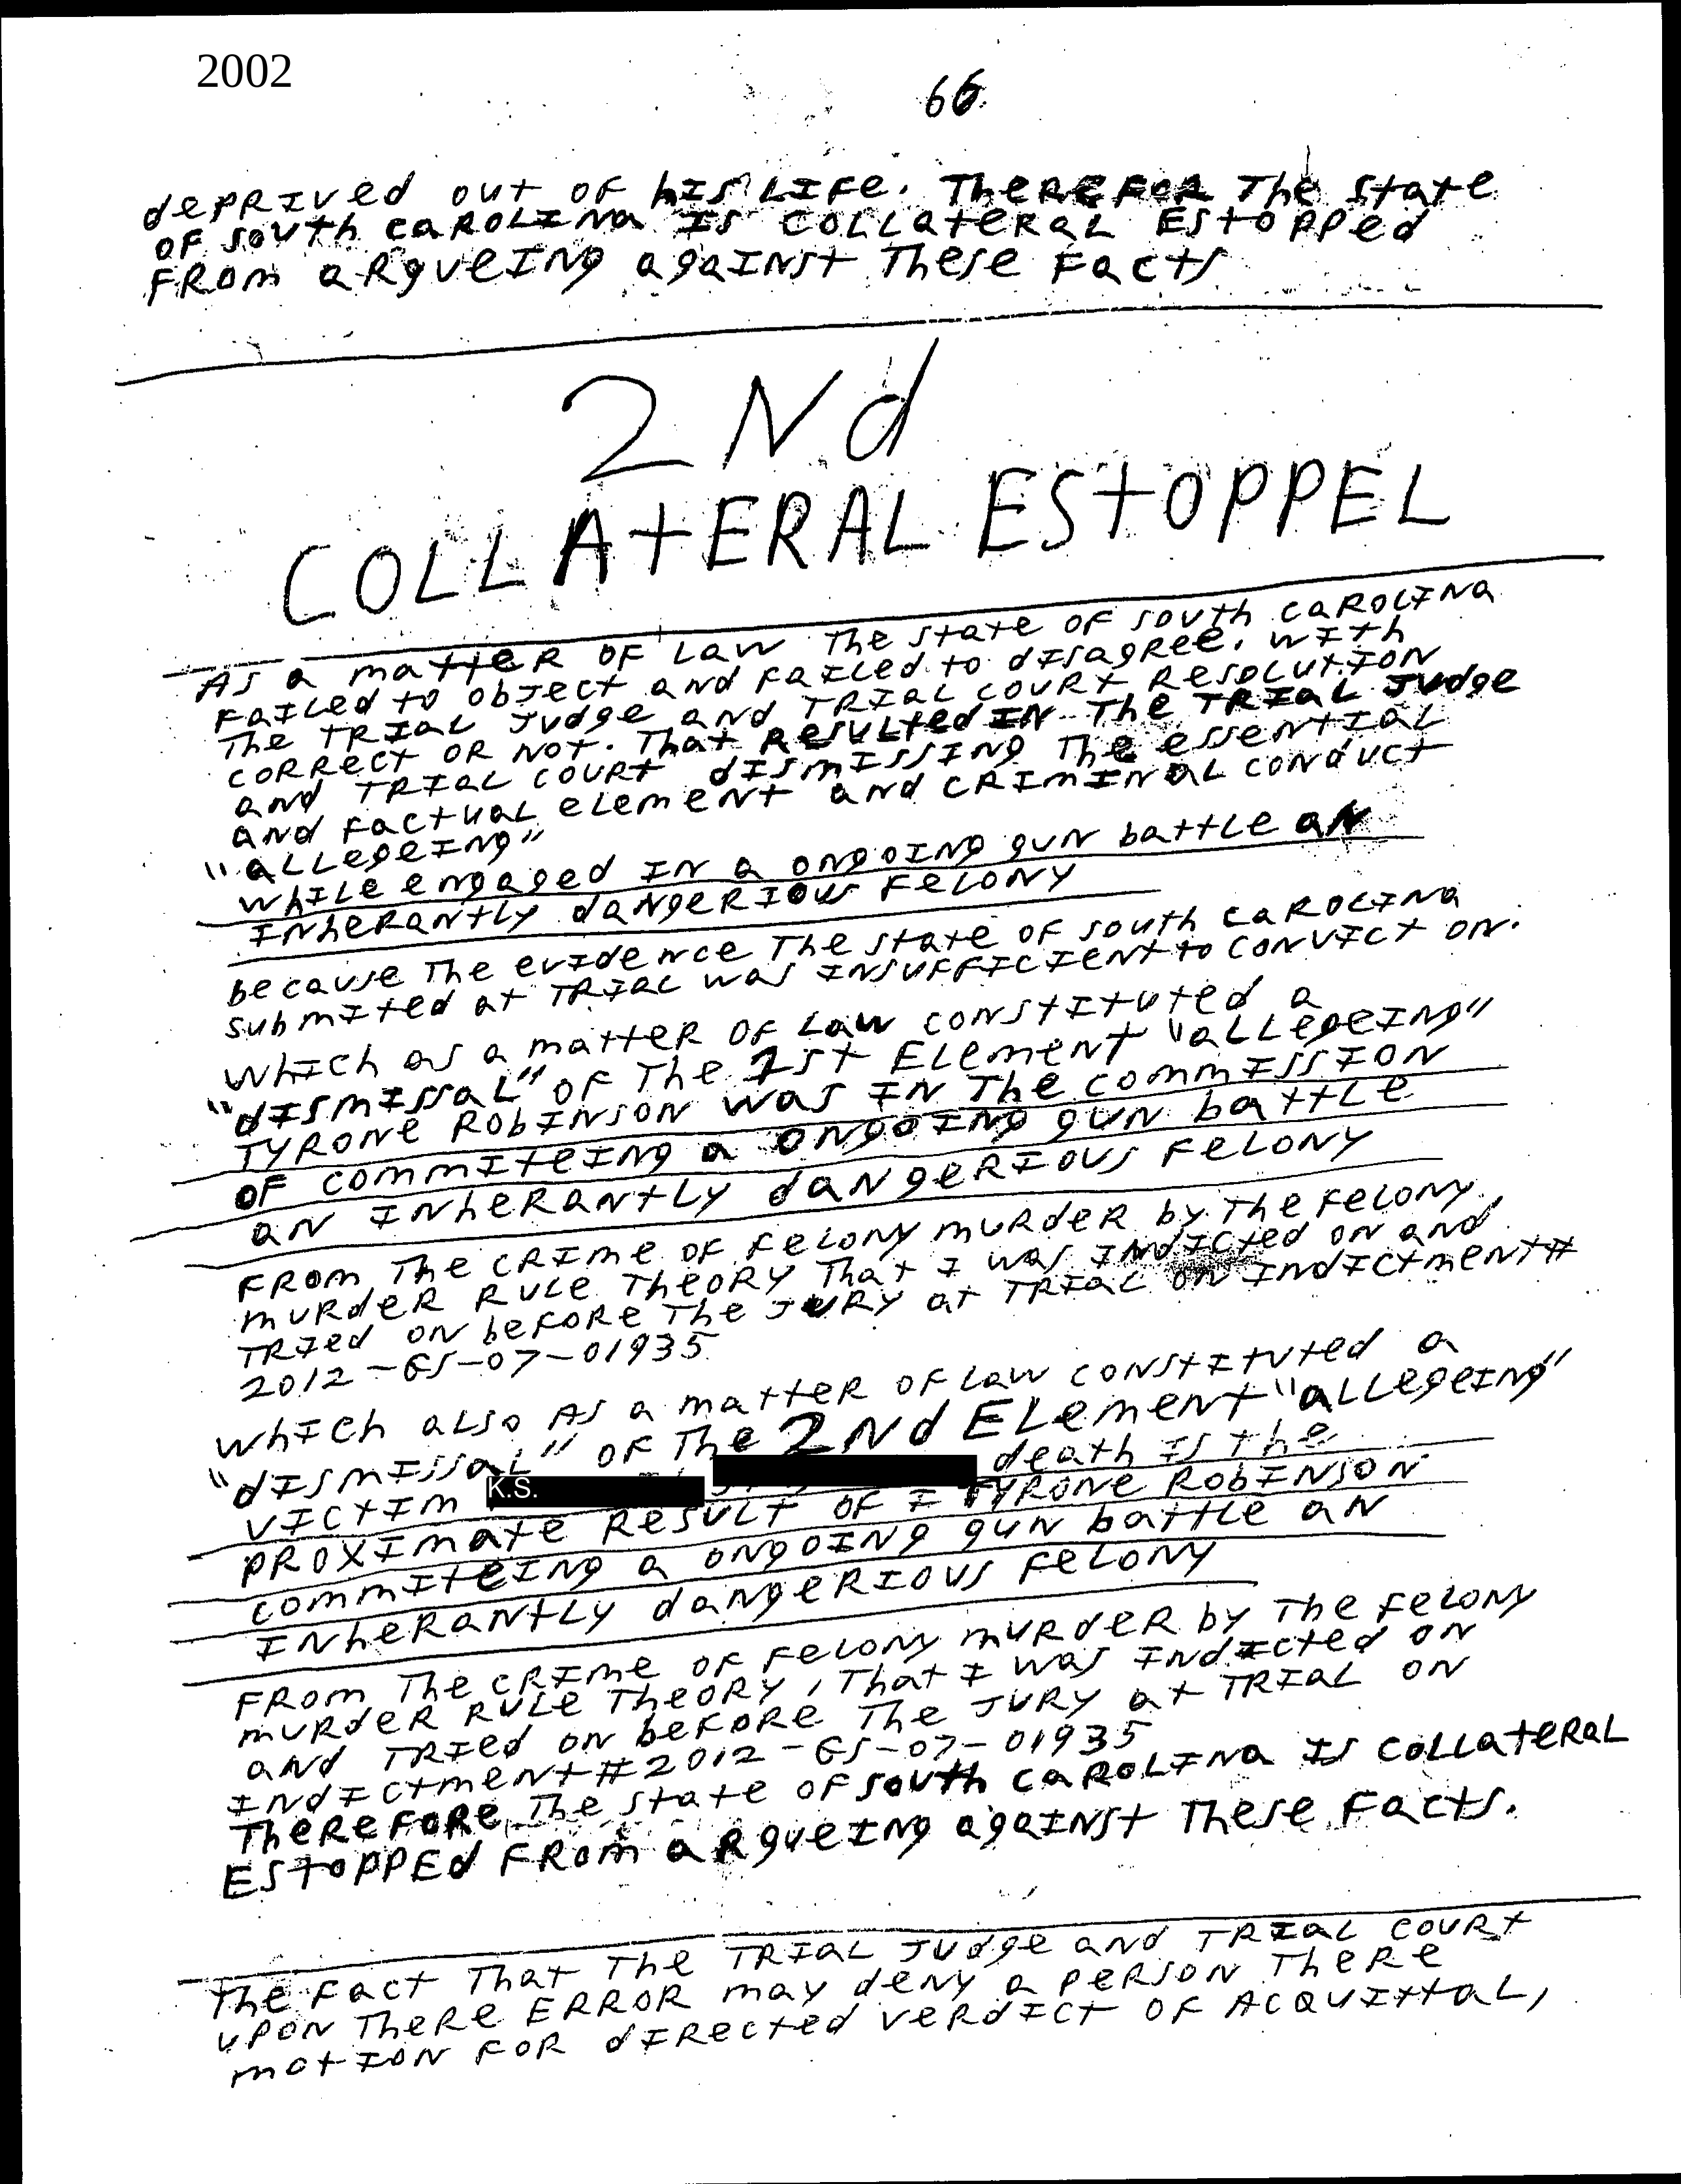 2002
66
deprived out of his life. Therefor The State
of south carolina is collateral Estopped
from argueing against These Facts
2Nd
COLLATERAL ESTOPPEL
As a matter of law The state of south carolina
failed to object and failed to disagree. with
The trial judge and trial court resolution
correct or not. That resulted in The trial judge
and trial court dismissing The essential
and factual element and criminal conduct
"allegeing"
while engaged in a ongoing gun battle an
inherantly dangerious felony
because The evidence The state of south carolina
submited at trial was insufficient to convict on.
which as a matter of law constituted a
"dismissal" of The 1st Element "allegeing"
Tyrone Robinson was in The commission
of commiteing a ongoing gun battle
an inherantly dangerious felony
from The crime of felony murder by The felony
murder rule Theory That I was indicted on and
tried on before The jury at trial on indictment#
2012-GS-07-01935
which also as a matter of law constituted a
"dismissal" of The 2Nd Element "allegeing"
victim K.S. death is the
proximate result of I Tyrone Robinson
commiteing a ongoing gun battle an
inherantly dangerious felony
from The crime of felony murder by The felony
murder rule Theory, That I was indicted on
and tried on before The jury at trial on
indictment#2012-GS-07-01935
Therefore The state of south carolina is collateral
Estopped from argueing against These Facts.
The fact That The trial judge and trial court
upon There ERROR may deny a person There
motion for directed verdict of Acquittal,